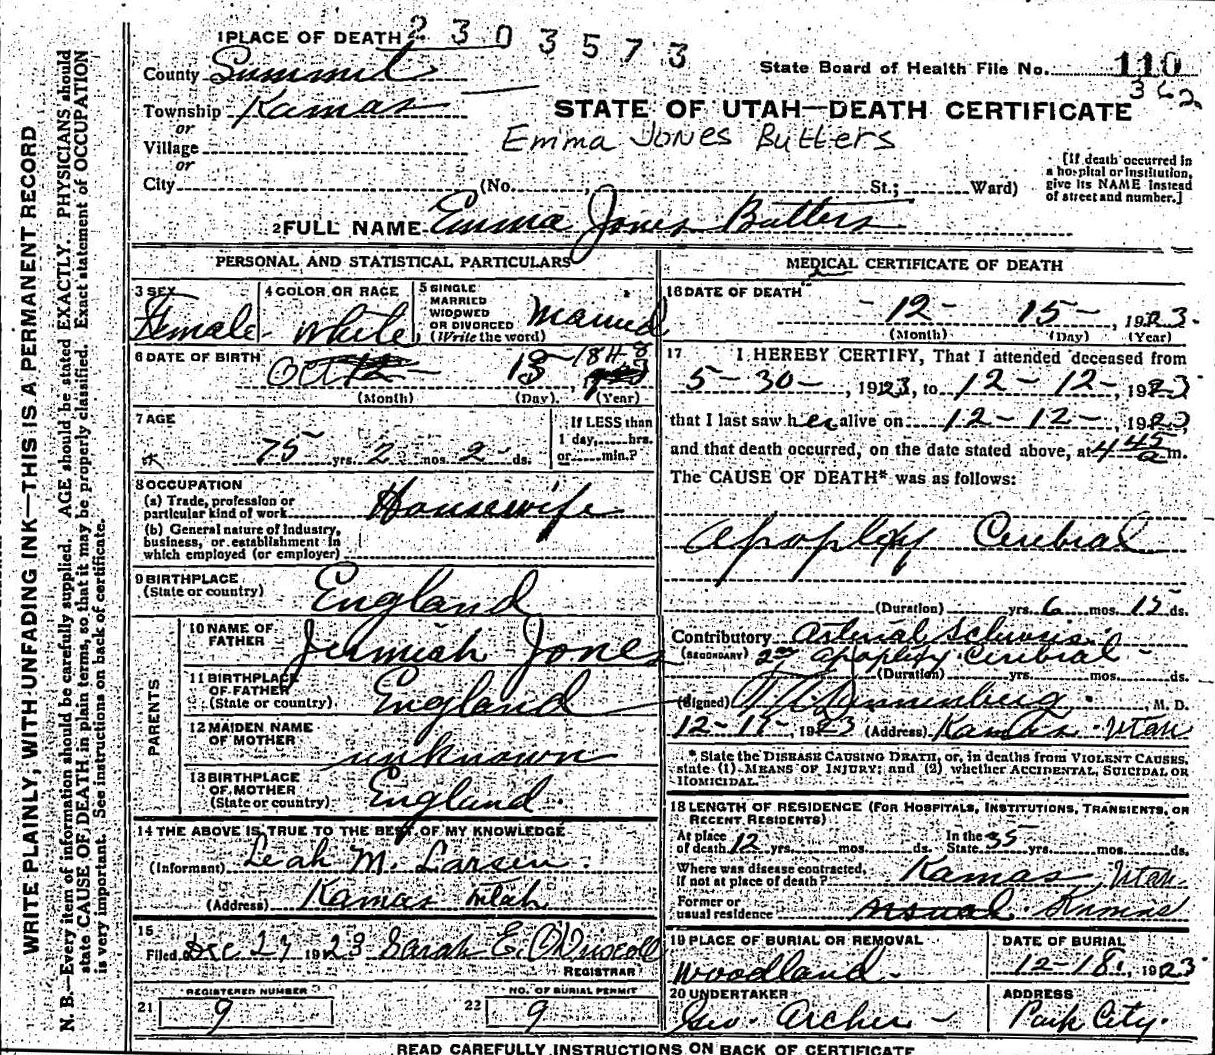 1 PLACE OF DEATH 2303573
County Summit
State Board of Health File No. 110
362
Township Kamas
or
Village
or
City (No. St.; Ward)
STATE OF UTAH—DEATH CERTIFICATE
Emma Jones Butters
[If death occurred in
a hospital or institution,
give its NAME instead
of street and number.]
2 FULL NAME Emma Jones Butters
PERSONAL AND STATISTICAL PARTICULARS
3 SEX
Female
4 COLOR OR RACE
White
5 SINGLE
MARRIED
WIDOWED
OR DIVORCED
(Write the word)
Married
6 DATE OF BIRTH
Oct 13 1848
(Month) (Day) (Year)
7 AGE
75 yrs. 2 mos. 2 ds.
If LESS than
1 day, hrs.
or min.?
8 OCCUPATION
(a) Trade, profession or
particular kind of work Housewife
(b) General nature of industry,
business, or establishment in
which employed (or employer)
9 BIRTHPLACE
(State or country) England
PARENTS
10 NAME OF
FATHER Jermiah Jones
11 BIRTHPLACE
OF FATHER
(State or country) England
12 MAIDEN NAME
OF MOTHER unknown
13 BIRTHPLACE
OF MOTHER
(State or country) England.
14 THE ABOVE IS TRUE TO THE BEST OF MY KNOWLEDGE
(Informant) Leah M. Larsen.
(Address) Kamas Utah
15
Filed Dec 27 1923 Sarah E. O'Driscoll
REGISTRAR
21 REGISTERED NUMBER
9
22 NO. OF BURIAL PERMIT
9
MEDICAL CERTIFICATE OF DEATH
16 DATE OF DEATH
12- 15-, 1923.
(Month) (Day) (Year)
17 I HEREBY CERTIFY, That I attended deceased from
5-30-, 1923, to 12-12-, 1923
that I last saw her alive on 12-12-, 1923,
and that death occurred, on the date stated above, at 4 45 a m.
The CAUSE OF DEATH* was as follows:
Apoplexy Cerebral
(Duration) yrs. 6 mos. 15 ds.
Contributory Arterial Sclerosis
(SECONDARY) 2nd apoplexy Cerebral
(Duration) yrs. mos. ds.
(Signed) M. D.
12-17-, 1923 (Address) Kamas Utah
* State the DISEASE CAUSING DEATH, or, in deaths from VIOLENT CAUSES,
state (1) MEANS OF INJURY; and (2) whether ACCIDENTAL, SUICIDAL OR
HOMICIDAL.
18 LENGTH OF RESIDENCE (FOR HOSPITALS, INSTITUTIONS, TRANSIENTS, OR
RECENT RESIDENTS)
At place
of death 12 yrs. mos. ds.
In the
State 35 yrs. mos. ds.
Where was disease contracted,
if not at place of death? Kamas, Utah.
Former or
usual residence usual. Kamas
19 PLACE OF BURIAL OR REMOVAL
Woodland
DATE OF BURIAL
12-18, 1923
20 UNDERTAKER
Geo. Archer
ADDRESS
Park City.
WRITE PLAINLY, WITH UNFADING INK—THIS IS A PERMANENT RECORD
N. B.—Every item of information should be carefully supplied. AGE should be stated EXACTLY. PHYSICIANS should
state CAUSE OF DEATH in plain terms, so that it may be properly classified. Exact statement of OCCUPATION
is very important. See instructions on back of certificate.
READ CAREFULLY INSTRUCTIONS ON BACK OF CERTIFICATE